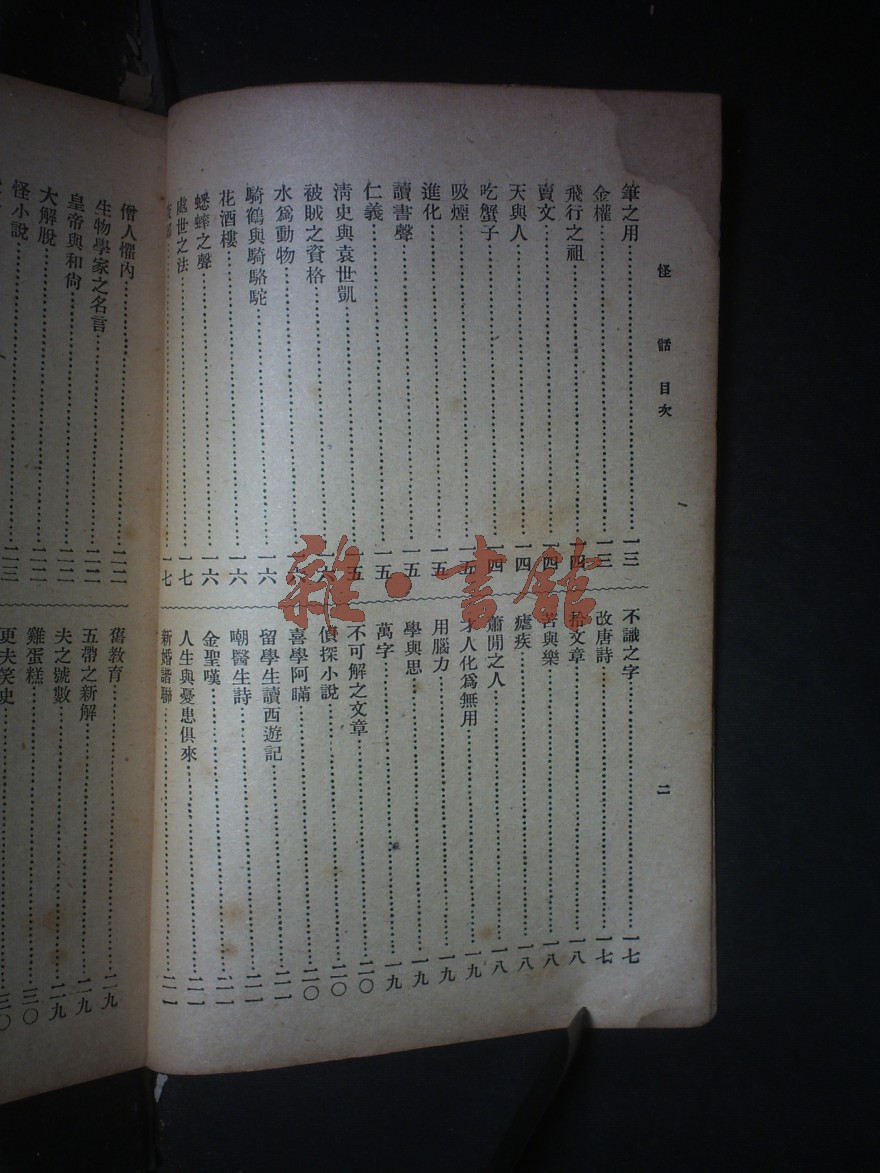 怪話目次
二
筆之用…一三
金權…一三
飛行之祖…一四
賣文…一四
天與人…一四
吃蟹子…一四
吸煙…一五
進化…一五
讀書聲…一五
仁義…一五
淸史與袁世凱…一五
被賊之資格…一六
水爲動物…一六
騎鶴與騎駱駝…一六
花酒樓…一六
蟋蟀之聲…一六
處世之法…一七
一七
不識之字…一七
改唐詩…一七
拾文章…一八
苦與樂…一八
瘧疾…一八
蕭閒之人…一八
才人化爲無用…一九
用腦力…一九
學與思…一九
萬字…一九
不可解之文章…二〇
偵探小說…二〇
喜學阿瞞…二〇
留學生讀西遊記…二一
嘲醫生詩…二一
金聖嘆…二一
人生與憂患俱來…二一
新婚諧聯…二一
僧人懼內…二二
生物學家之名言…二二
皇帝與和尙…二二
大解脫…二二
怪小說…二三
舊教育…二九
五帶之新解…二九
夫之號數…二九
雞蛋糕…三〇
更夫笑史…三〇
雜·書館